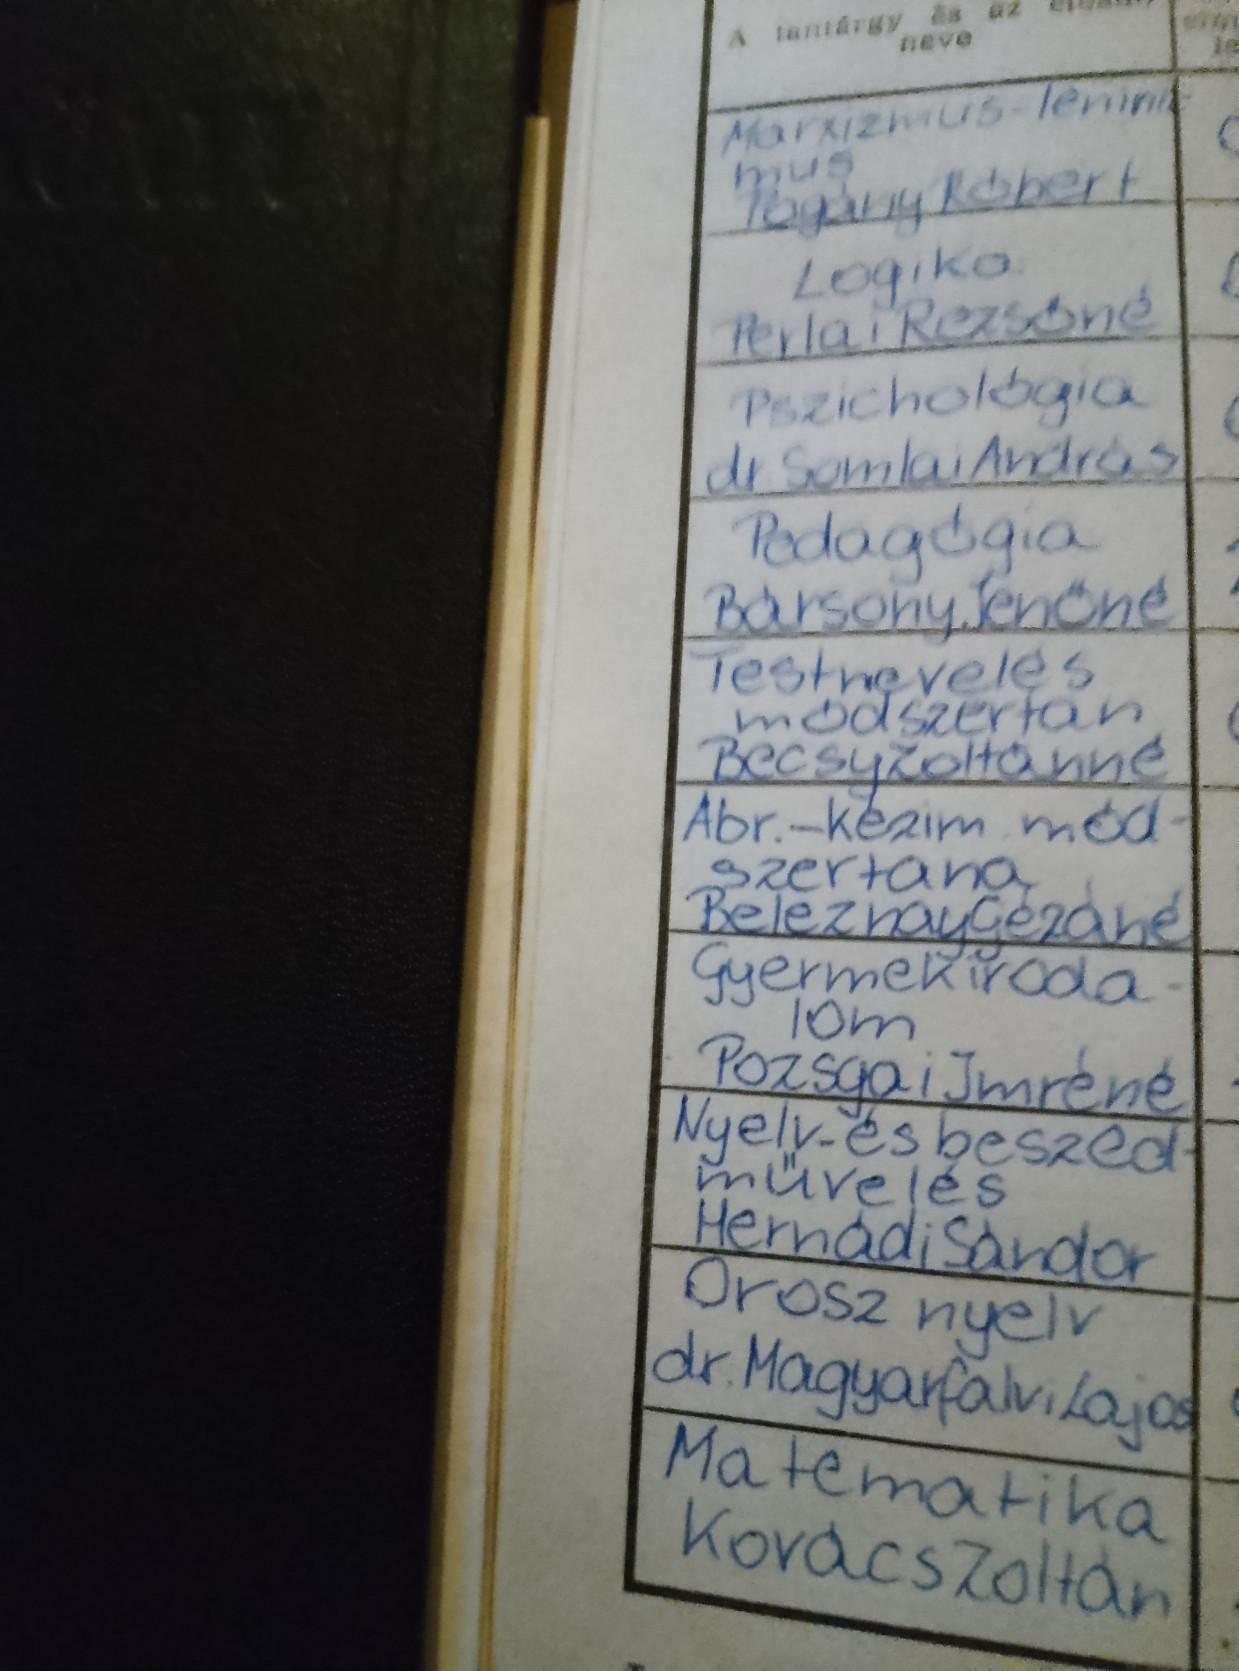 A tantárgy és az előadó
neve
Marxizmus-lenini
mus
Pogány Róbert
Logika
Perlai Rezsőné
Pszichológia
dr. Somlai András
Pedagógia
Bársony Jenőné
Testnevelés
módszertan
Becsy Zoltánné
Ábr.-kézim. mód-
szertana
Beleznay Gézáné
Gyermekiroda-
lom
Pozsgai Imréné
Nyelv- és beszéd-
művelés
Hernádi Sándor
Orosz nyelv
dr. Magyarfalvi Lajos
Matematika
Kovács Zoltán